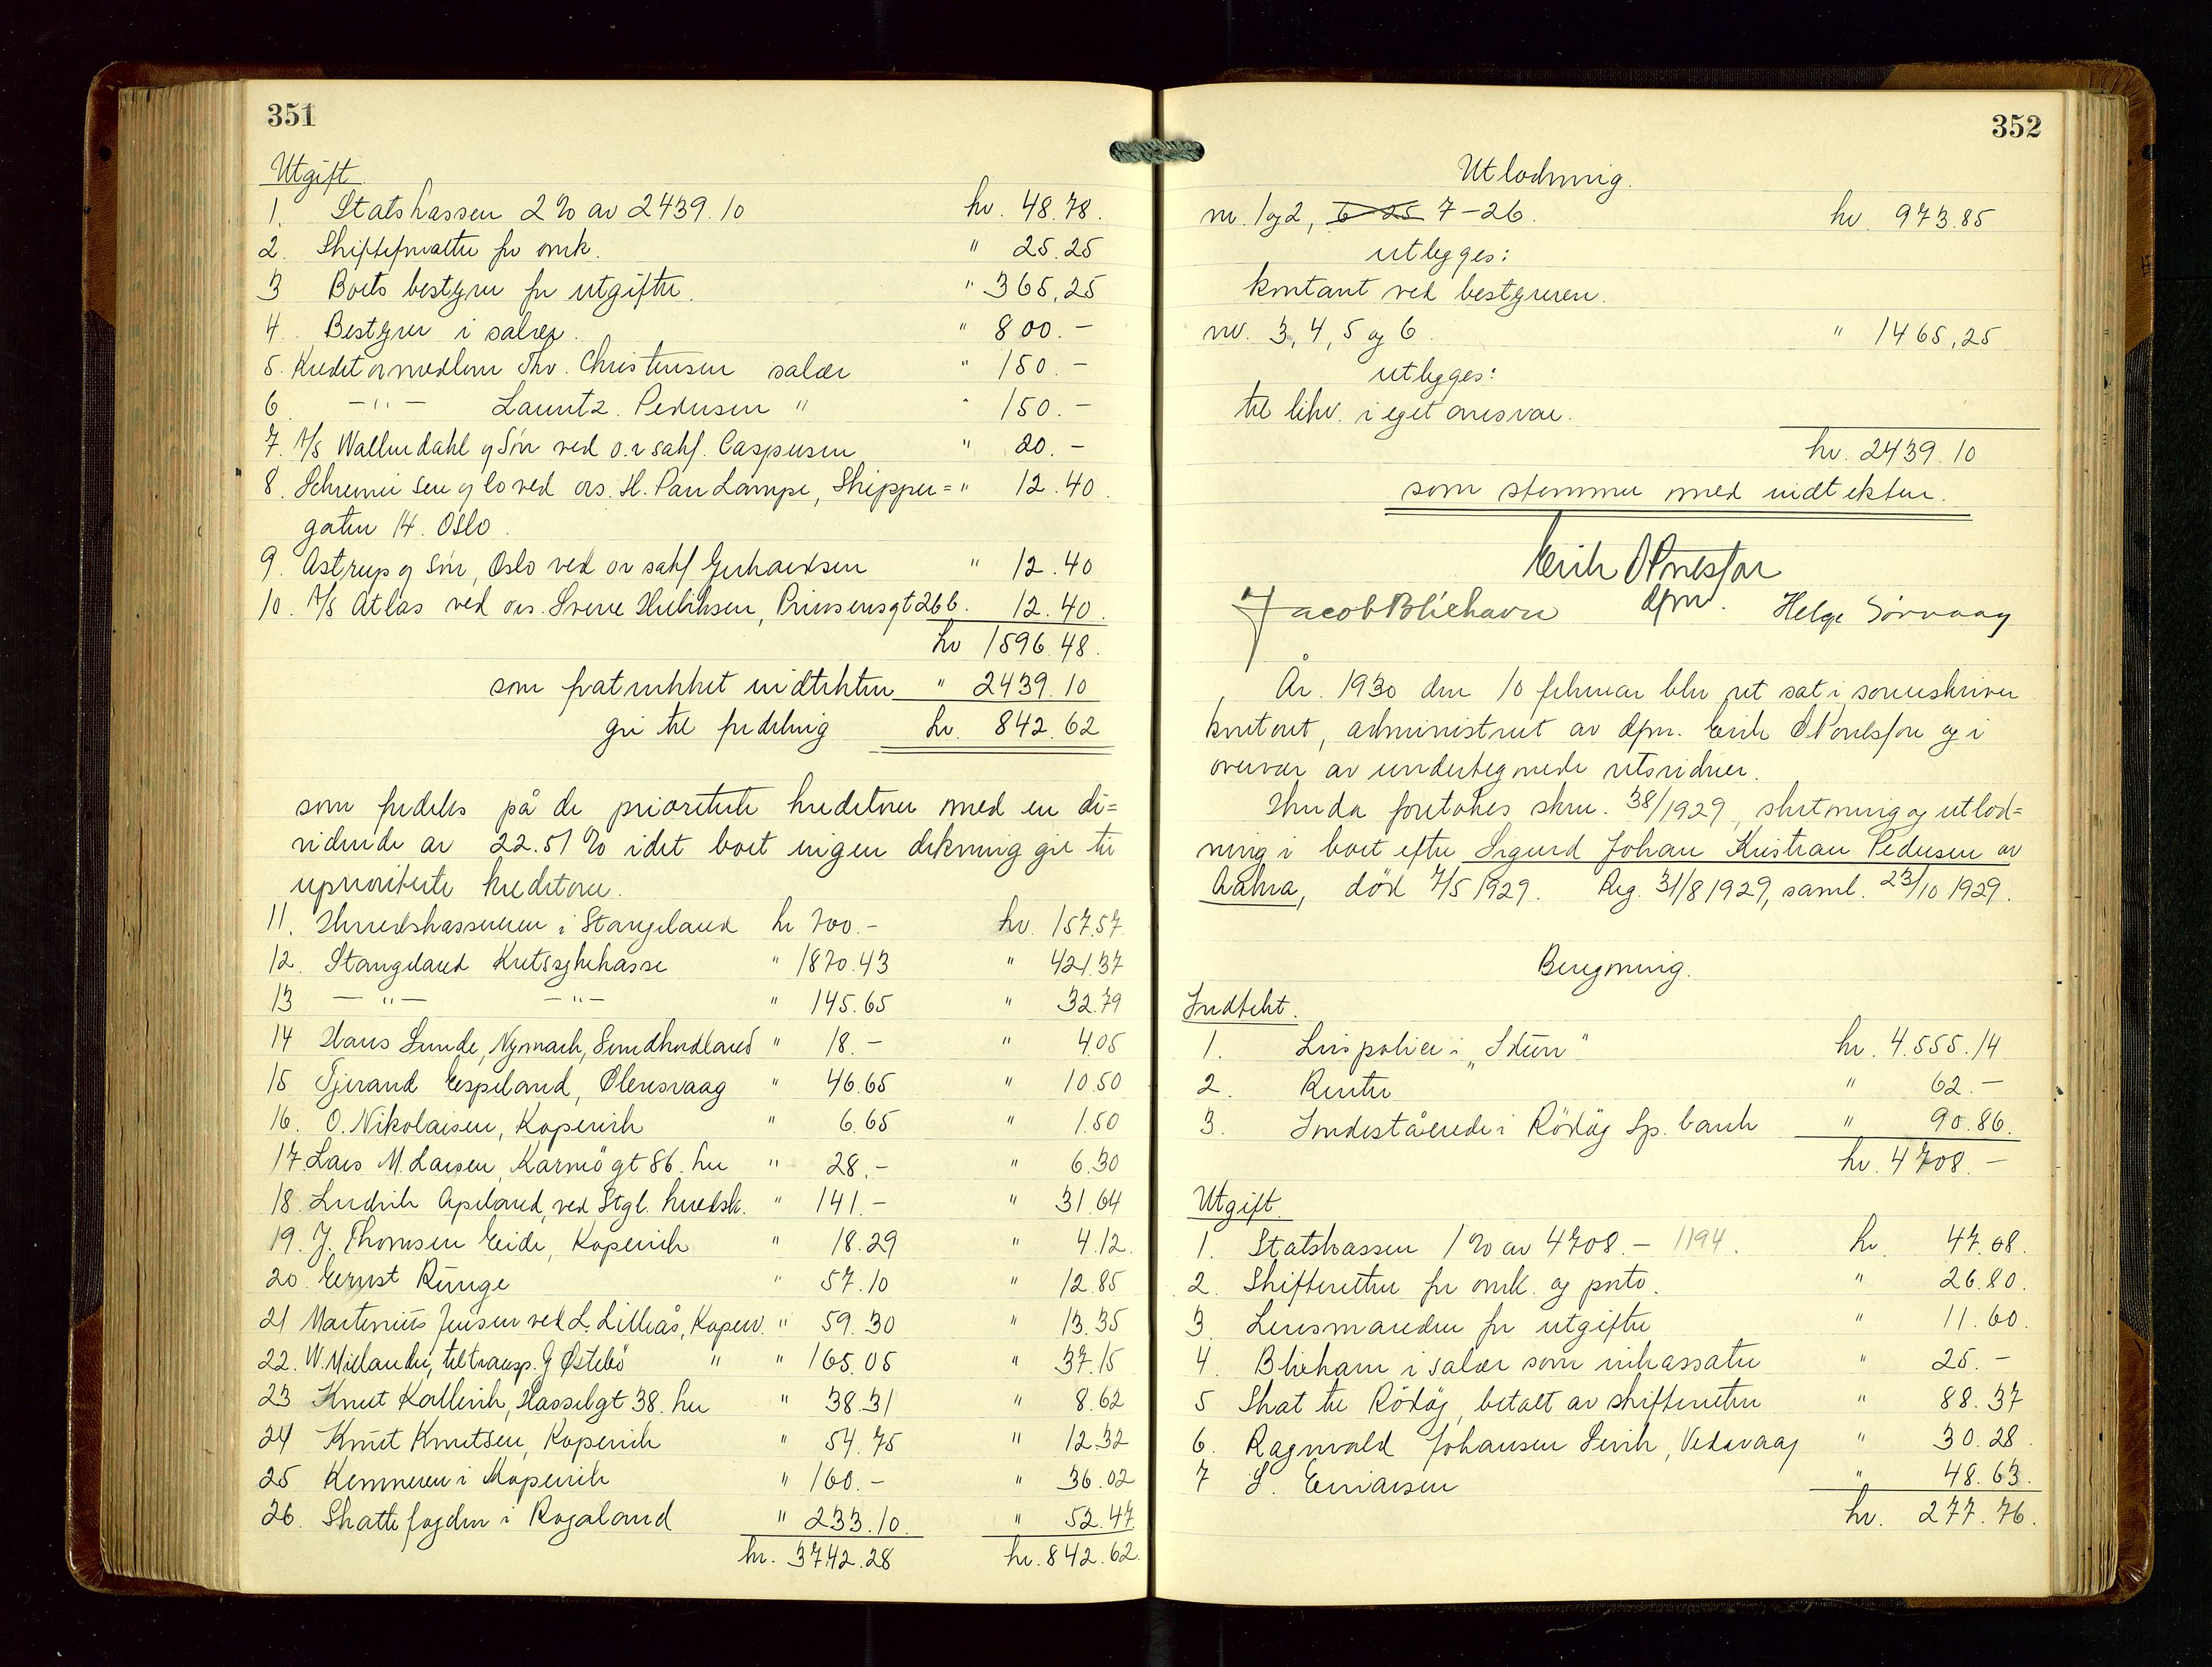 351
Utgift
1. Statskassen 2% av 2439.10 kr. 48.78.
2. Skifteforvalter for omk. " 25.25
3 Boets bestyrer for utgifter. " 365,25
4. Bestyrer i salær. " 800.-
5. Kreditormedlem Thv. Christensen salær " 150.-
6 -"- Lauritz. Pedersen " " 150.-
7. A/S Wallendahl og Sön ved o.r sakf. Caspersen " 20.-
8. Schreiner sen og Co ved ors. H. Pau Lampe, Skipper= " 12.40.
gaten 14. Oslo.
9. Astrup og Sön, Oslo ved or sakf Gerhardsen " 12.40
10. A/S Atlas ved ors. Sverre Hieliksen, Prinsensgt 26 b. 12.40.
kr 1596.48.
som fratrukket indtekten " 2439.10
gir til fordeling kr. 842.62
som fordeles på de prioriterte kreditorer med en di=
vidende av 22.51 % idet boet ingen dekning gir til
uprioriterte kreditorer.
11. Herredskassereren i Stangeland kr 700.- kr. 157.57.
12. Stangeland Kretssykekasse " 1870.43 " 421.37
13 -"- -"- " 145.65 " 32.79
14 Hans Lunde, Nymark, Sundhordland " 18.- " 4.05
15 Tjerand Espeland, Ølensvaag " 46.65 " 10.50
16. O. Nikolaisen, Kopervik " 6.65 " 1.50
17. Lars M. Larsen, Karmögt 86. her " 28.- " 6.30
18. Ludvik Apeland, ved Stgl. herredsk. " 141.- " 31.64
19. J. Thomsen Eide, Kopervik " 18.29 " 4.12.
20. Ernst Runge " 57.10 " 12.85
21 Martinius Jensen ved L. Lilleås, Koperv. " 59.30 " 13.35
22. W. Mielander, til transp. G Østebö " " 165.05 " 37.15
23 Knut Kallevik, Hasselgt 38. her " 38.31 " 8.62
24 Knut Knutsen, Kopervik " 54.75 " 12.32
25 Kemneren i Kopervik " 160.- " 36.02
26. Skattefogden i Rogaland " 233.10. " 52.47
kr. 3742.28 kr. 842.62.
352
Utlodning.
nr. 1 og 2, 6-25 7-26. kr. 973.85
utlegges:
kontant ved bestyreren.
nr. 3, 4, 5 og 6. " 1465,25
utlegges:
til likv. i eget ansvar.
kr. 2439.10
som stemmer med indtekten.
Erik
dfm.
Jacob Bliehavn Helge Sørvaag
År. 1930 den 10 februar blev ret sat i sorenskriver
kontoret, administrert av dfm. Erik og i
overvær av undertegnede retsvidner.
Herda foretokes skru. 38/1929, slutning og utlod=
ning i boet efter Sigurd Johan Kristian Pedersen av
Aakra, död 7/5 1929. Reg. 31/8 1929, saml. 23/10 1929.
Beregning.
Indtekt.
1. Livspolice i "Skun" kr. 4.555.14
2. Renter " 62.-
3. Indestående i Rödöy Sp. bank " 90.86.
kr. 4708.-
Utgift.
1. Statskassen 1% av 4708.- 1194. kr. 47.08.
2. Skifteretten for omk. og porto. " 26.80.
3. Lensmanden for utgifter " 11.60.
4 Bliehavn i salær som inkassator " 25.-
5 Skat til Rödöy, betalt av skifteretten " 88.37
6. Ragnvald Johansen Sevik, Vedavaag " 30.28.
7 S. Einarsen " 48.63.
kr. 277.76.